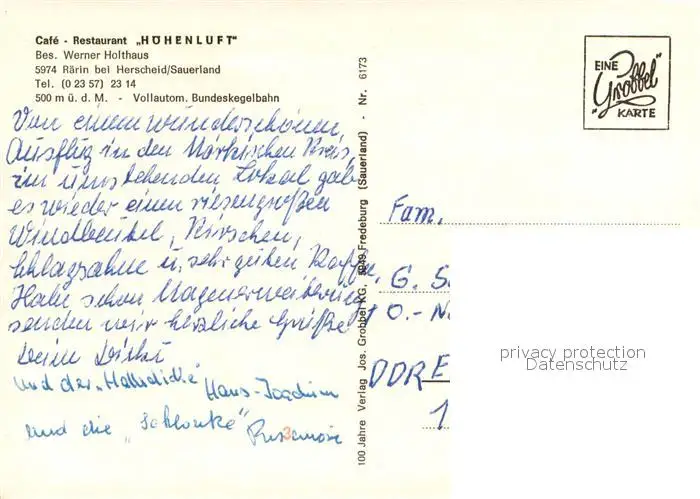 Café - Restaurant „HÖHENLUFT"
Bes. Werner Holthaus
5974 Rärin bei Herscheid/Sauerland
Tel. (0 23 57) 23 14
500 m ü. d. M. - Vollautom. Bundeskegelbahn
Von einem wunderschönen
Ausflug in den Märkischen Kreis,
im umstehenden Lokal gab
es wieder einen riesengroßen
Windbeutel, Kirschen,
Schlagsahne u. sehr guten Kaffee,
Habe schon Magenerweiterung
senden wir herzliche Grüße
Dein
und der „ " Hans-Joachim
und die „Schlanke" Rosemarie
100 Jahre Verlag Jos. Grobbel KG, 5949 Fredeburg (Sauerland) - Nr. 6173
EINE
„Grobbel"
KARTE
Fam.
G. S
O.-N
DDR E
1
privacy protection
Datenschutz